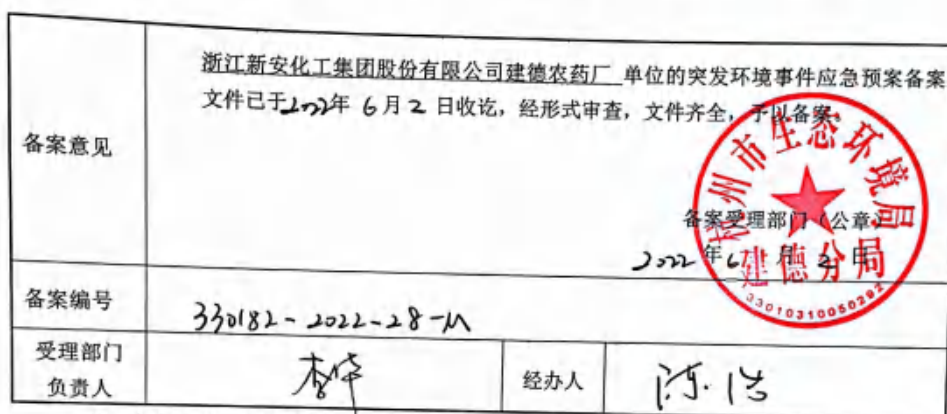 浙江新安化工集团股份有限公司建德农药厂 单位的突发环境事件应急预案备案
文件已于2022年 6月 2 日收讫，经形式审查，文件齐全，予以备案。
备案意见
杭州市生态环境局
备案受理部门（公章）
2022年6月2日
建德分局
33010310050292
备案编号
330182-2022-28-M
受理部门
负责人
经办人
陈浩